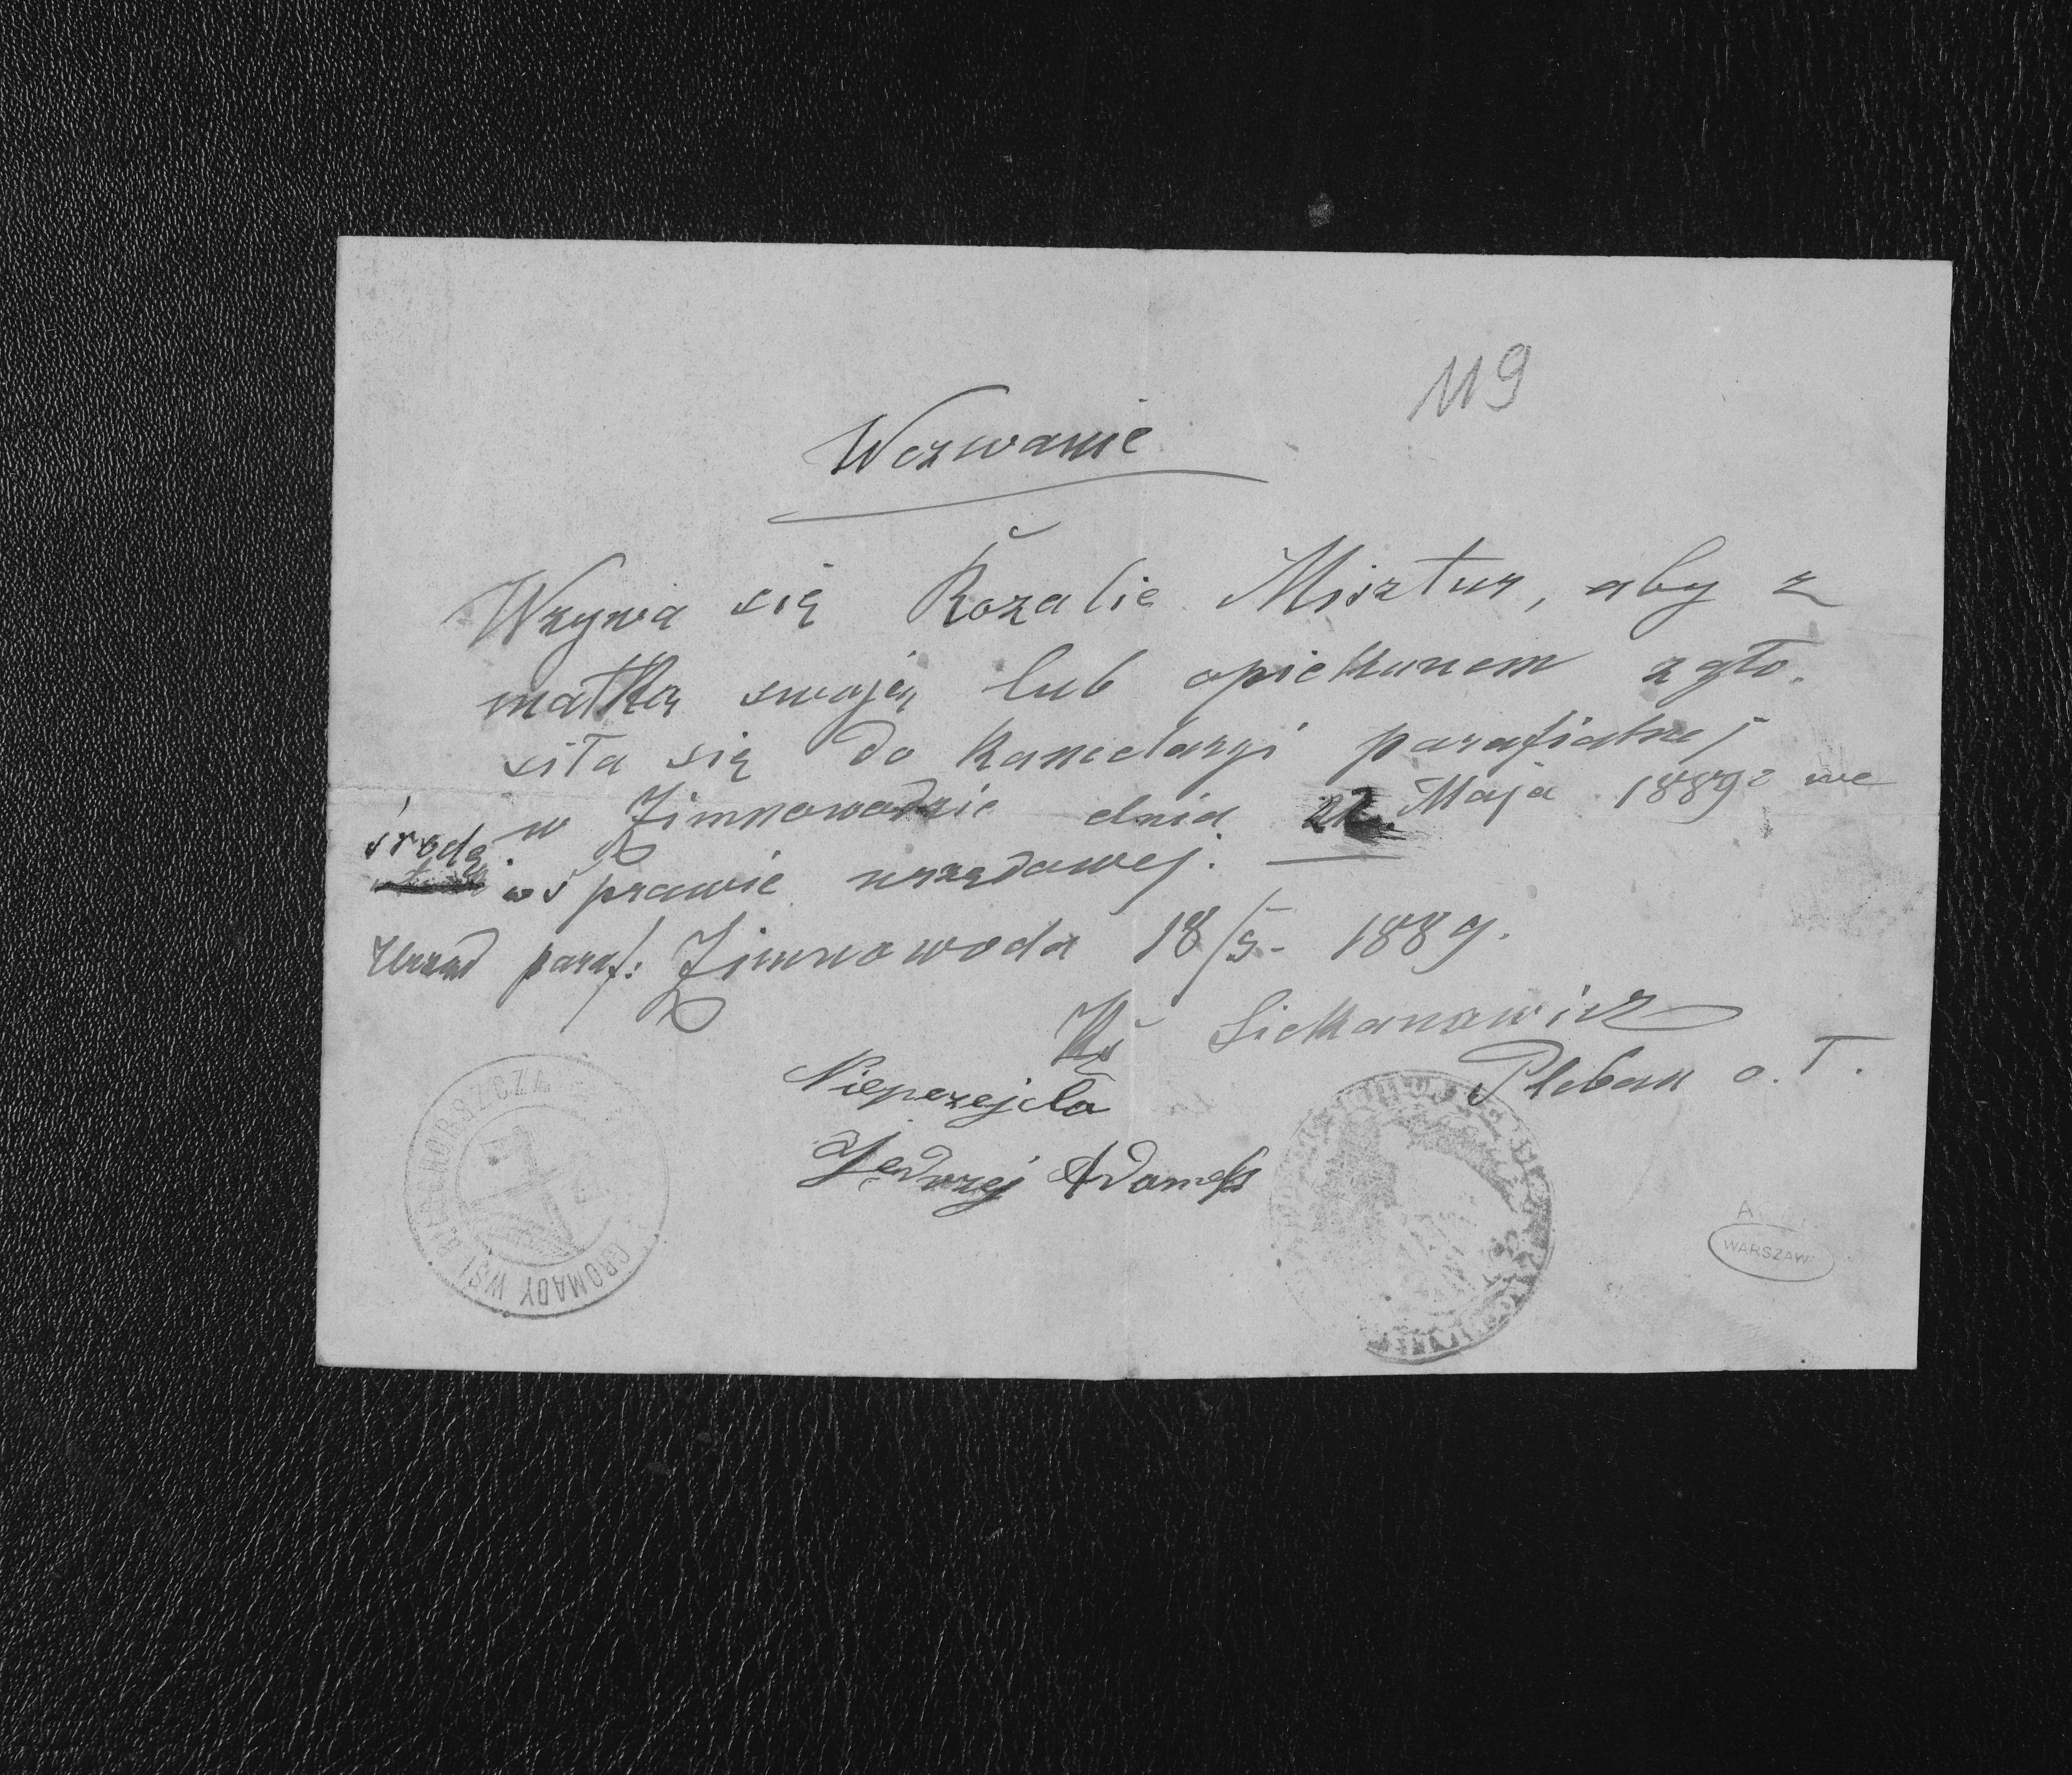 119
Wezwanie
Wzywa się Rozalię Misztur, aby z
matką swoją lub opiekunem zgło-
siła się do Kancelaryi parafialnej
w Zimnowodzie dnia 22 Maja 1889r we
środę w sprawie urzędowej.
Urząd paraf: Zimnowoda 18/5 - 1889.
Ks
Pleban o. ł.
Nieprzejęła
Jędrzej Adamek
GROMADY WSI BIEGHORSZCZA
WARSZAW